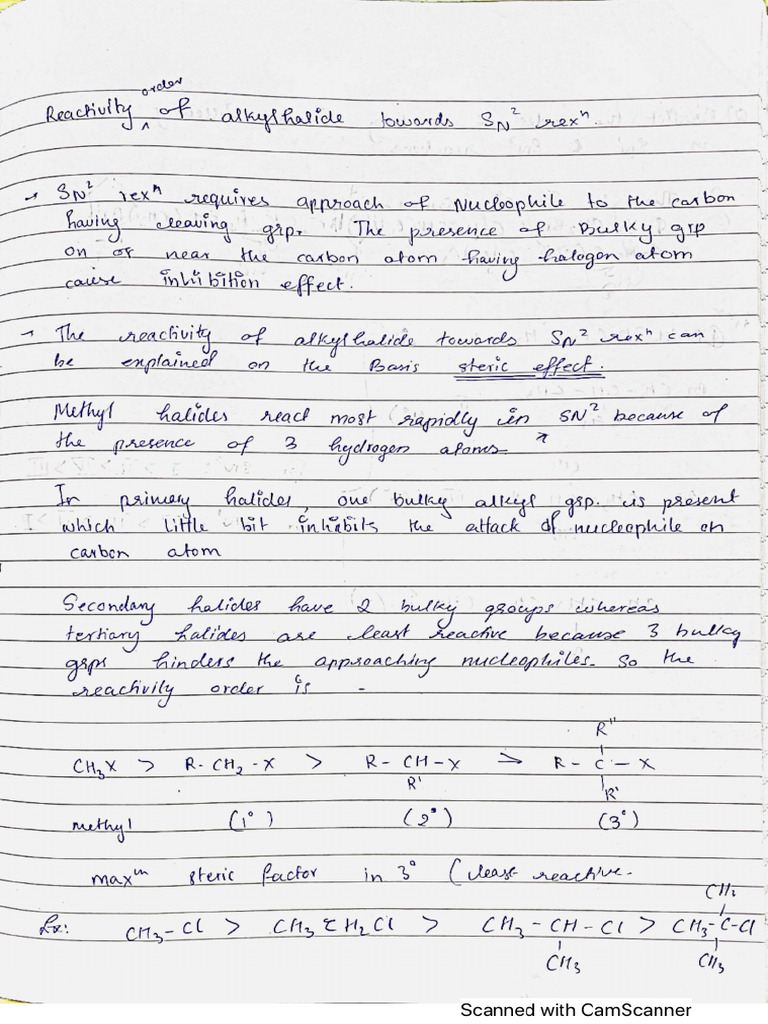 Reactivity order of alkylhalide towards SN² rexⁿ.
→ SN² rexⁿ requires approach of Nucleophile to the carbon
having leaving grp. The presence of Bulky grp
on or near the carbon atom having halogen atom
cause inhibition effect.
→ The reactivity of alkylhalide towards SN² rexⁿ can
be explained on the Basis steric effect.
Methyl halides react most rapidly in SN² because of
the presence of 3 hydrogen atoms
In primary halides, one bulky alkyl grp. is present
which little bit inhibits the attack of nucleophile on
carbon atom
Secondary halides have 2 bulky groups whereas
tertiary halides are least reactive because 3 bulky
grps hinders the approaching nucleophiles. So the
reactivity order is -
R"
CH₃X > R-CH₂-X > R-CH-X > R-C-X
R' R'
methyl (1°) (2°) (3°)
maxᵐ steric factor in 3° (least reactive.
CH₃
Ex: CH₃-Cl > CH₃CH₂Cl > CH₃-CH-Cl > CH₃-C-Cl
CH₃ CH₃
Scanned with CamScanner